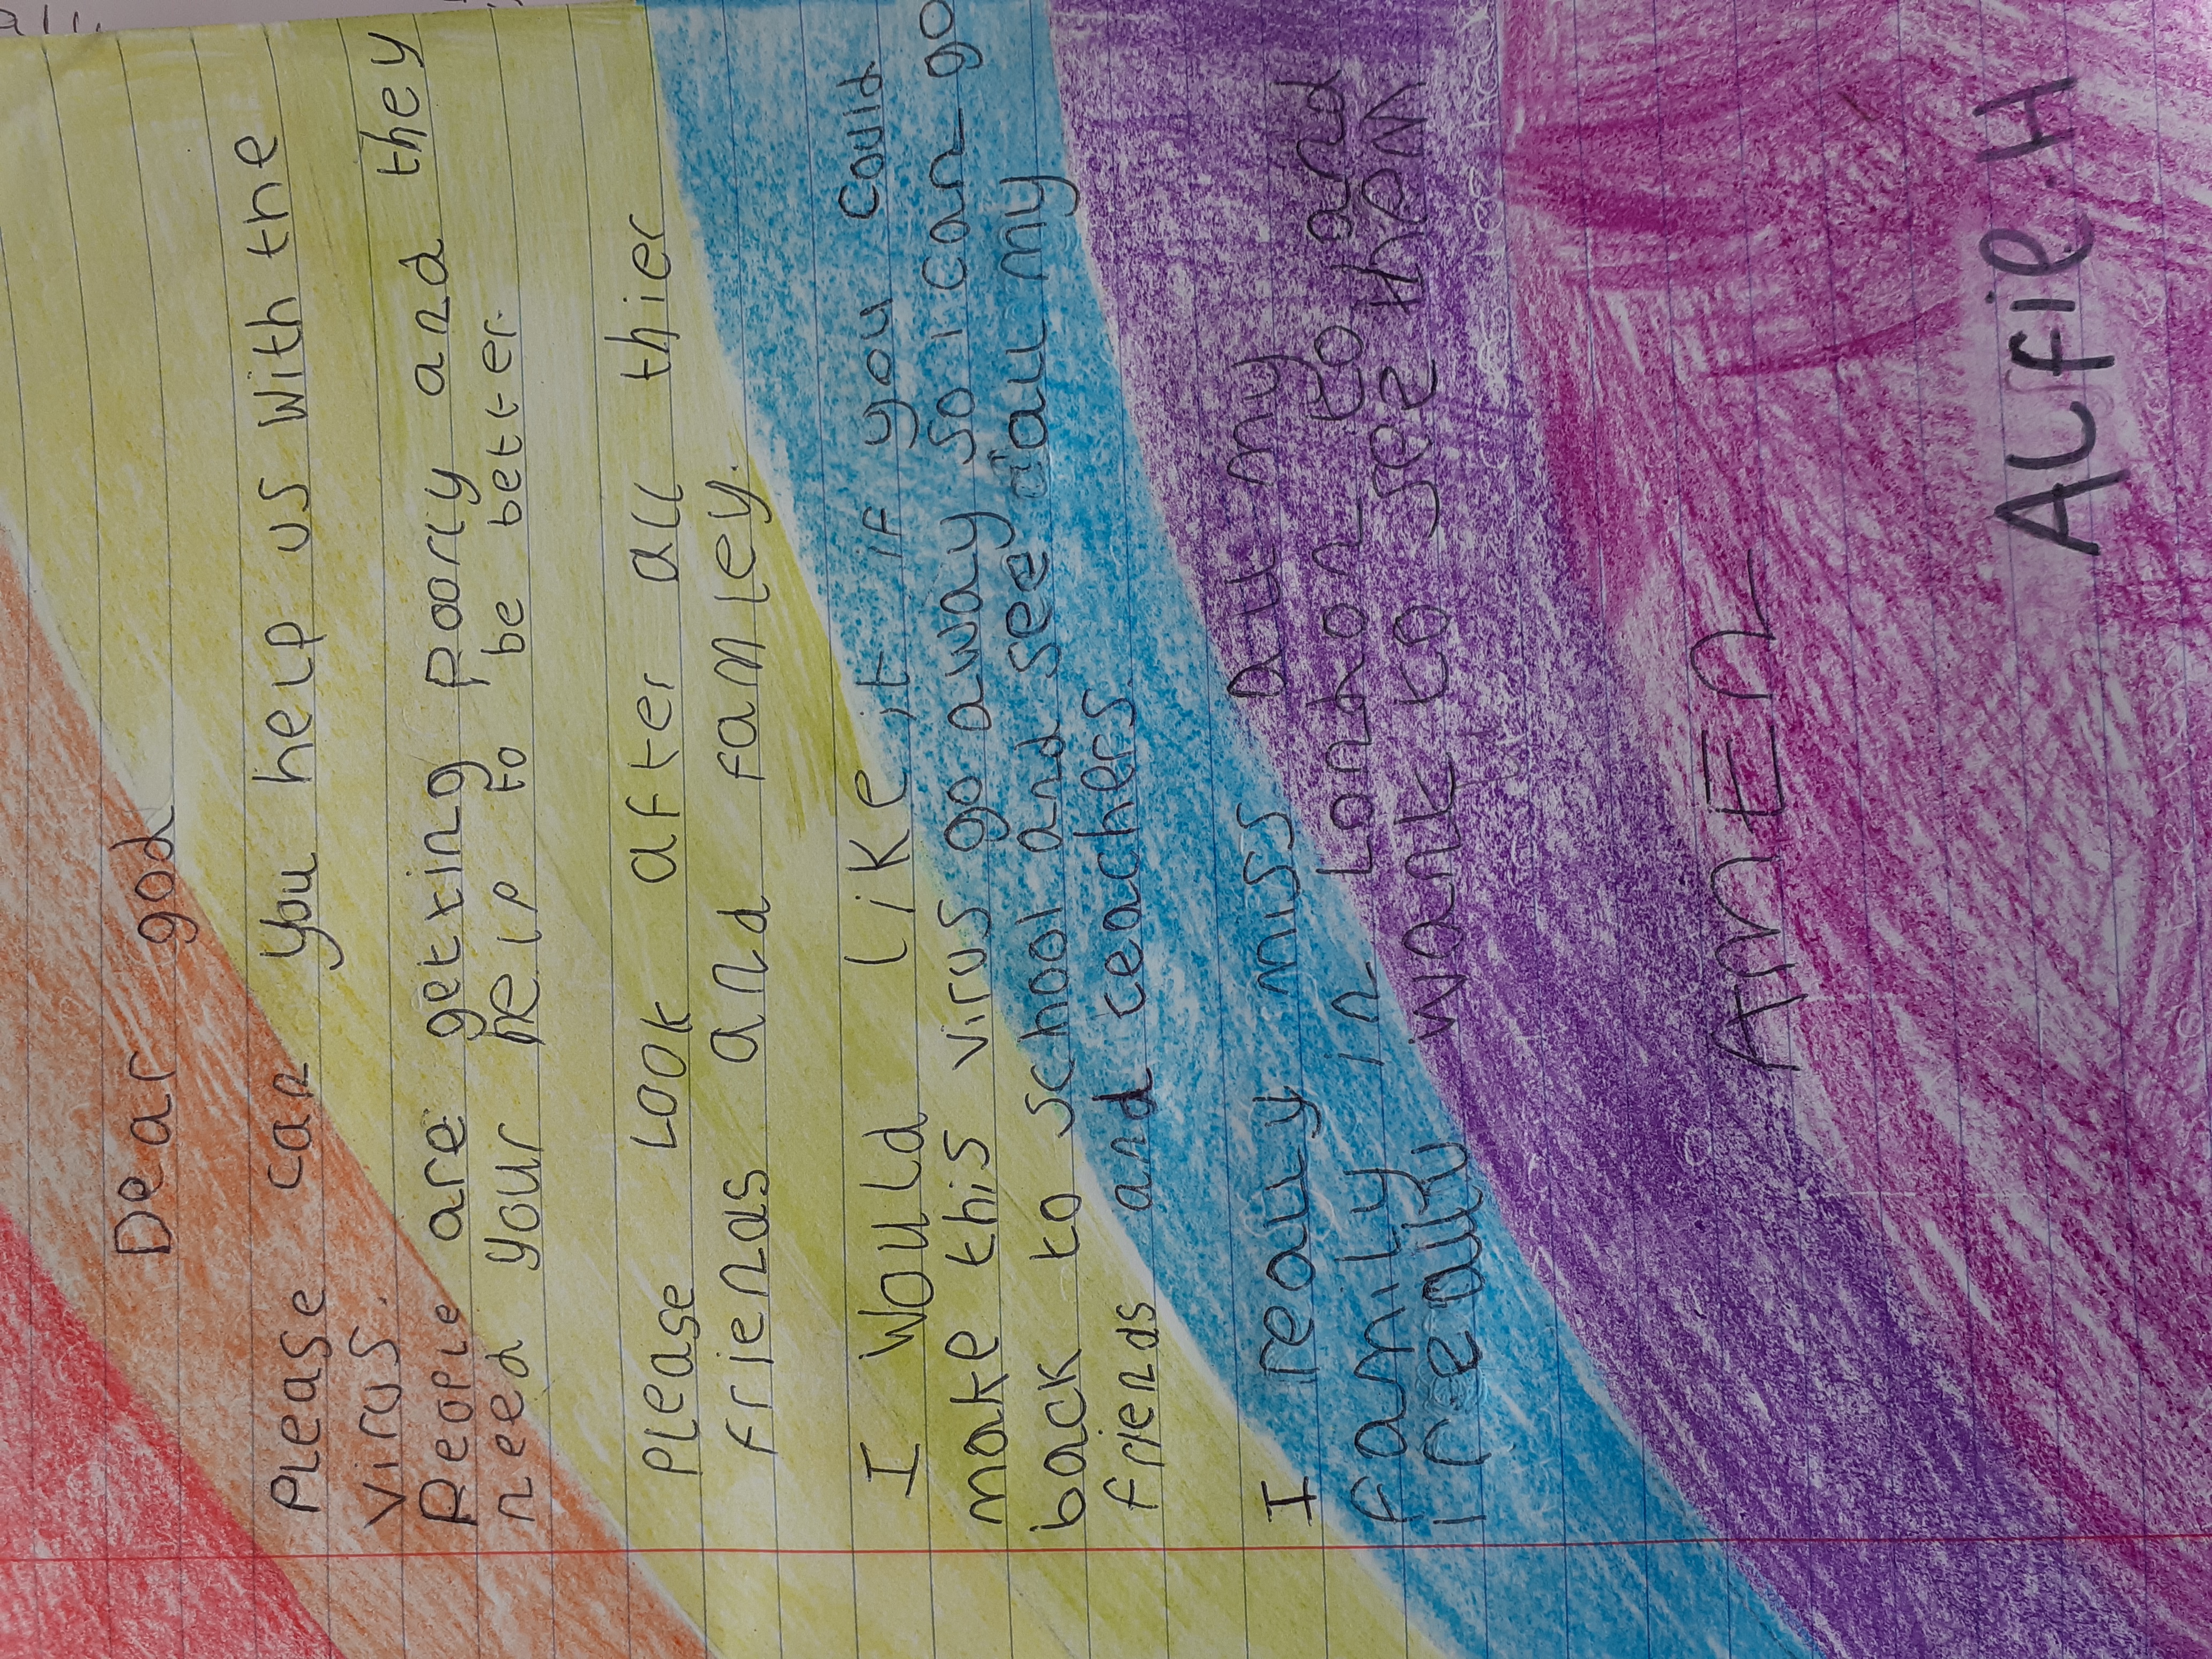 Dear god
Please can you help us with the
virus.
People are getting poorly and they
need your help to be better.
Please Look after all thier
friends and famley.
I would like it if you could
make this virus go away so i can go
back to school and see all my
friends and teachers.
I really miss all my
family in London to and
i really want to see them
AMEN
ALfie.H